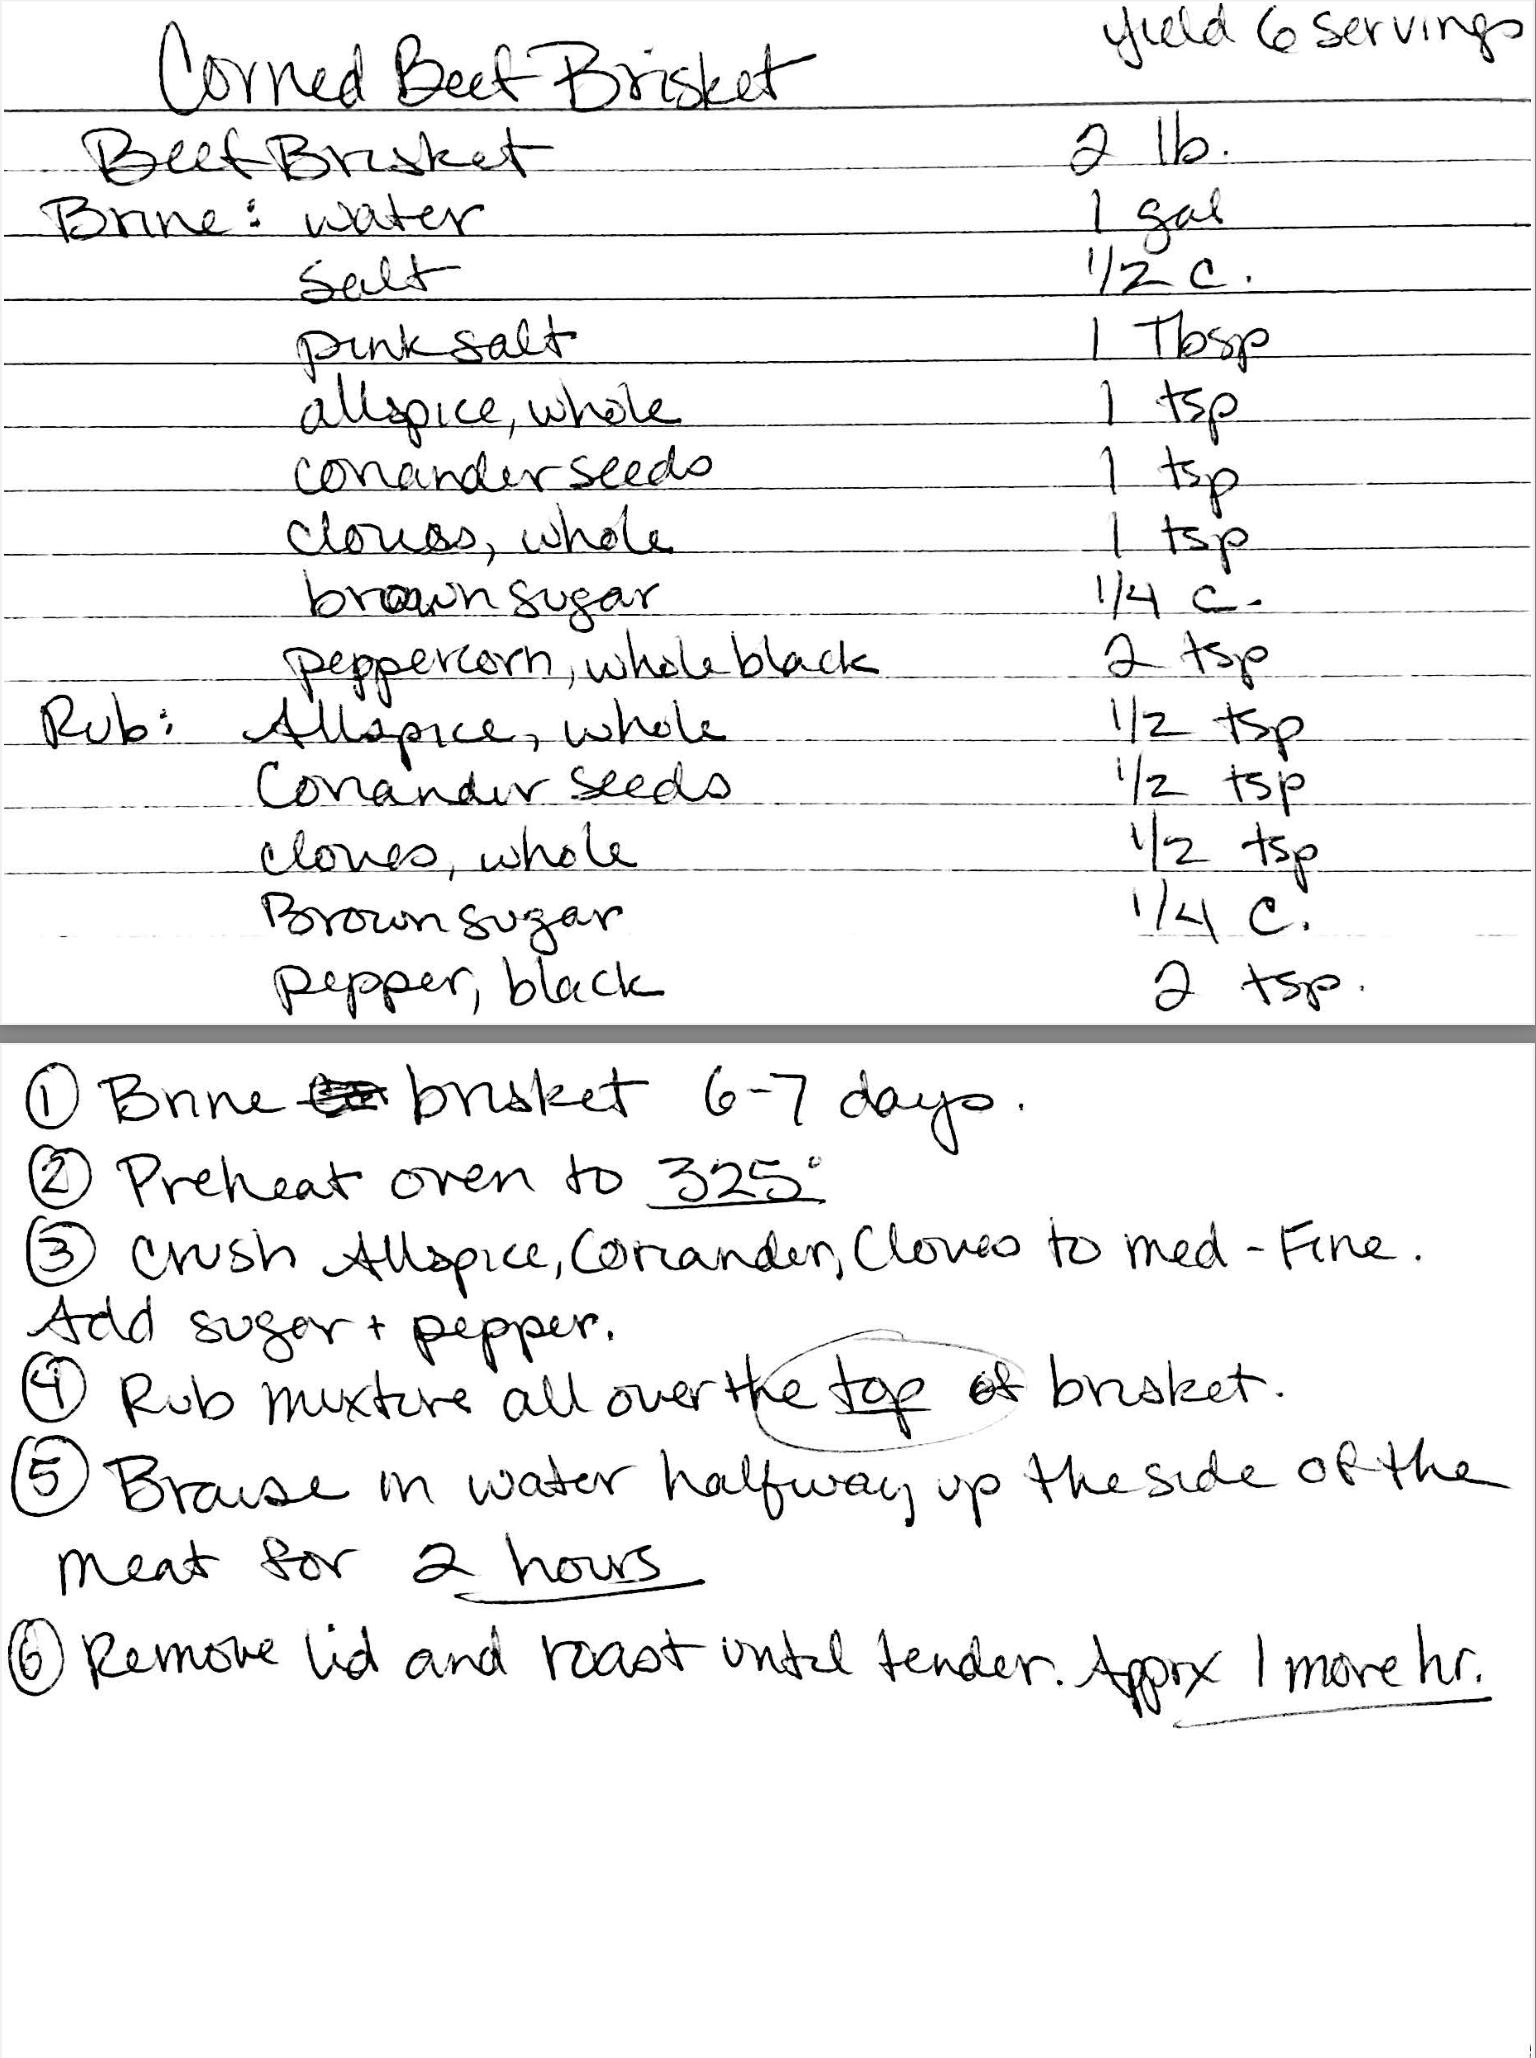 yield 6 servings
Corned Beef Brisket
Beef Brisket 2 lb.
Brine: water 1 gal
salt 1/2 c.
pink salt 1 Tbsp
allspice, whole 1 tsp
coriander seeds 1 tsp
cloves, whole 1 tsp
brown sugar 1/4 c.
peppercorn, whole black 2 tsp
Rub: Allspice, whole 1/2 tsp
Coriander seeds 1/2 tsp
cloves, whole 1/2 tsp
Brown sugar 1/4 C.
pepper, black 2 tsp.
① Brine brisket 6-7 days.
② Preheat oven to 325°
③ Crush Allspice, Coriander, Cloves to med-Fine.
Add sugar + pepper.
④ Rub mixture all over the top of brisket.
⑤ Braise in water halfway up the side of the
meat for 2 hours
⑥ Remove lid and roast until tender. Apprx 1 more hr.